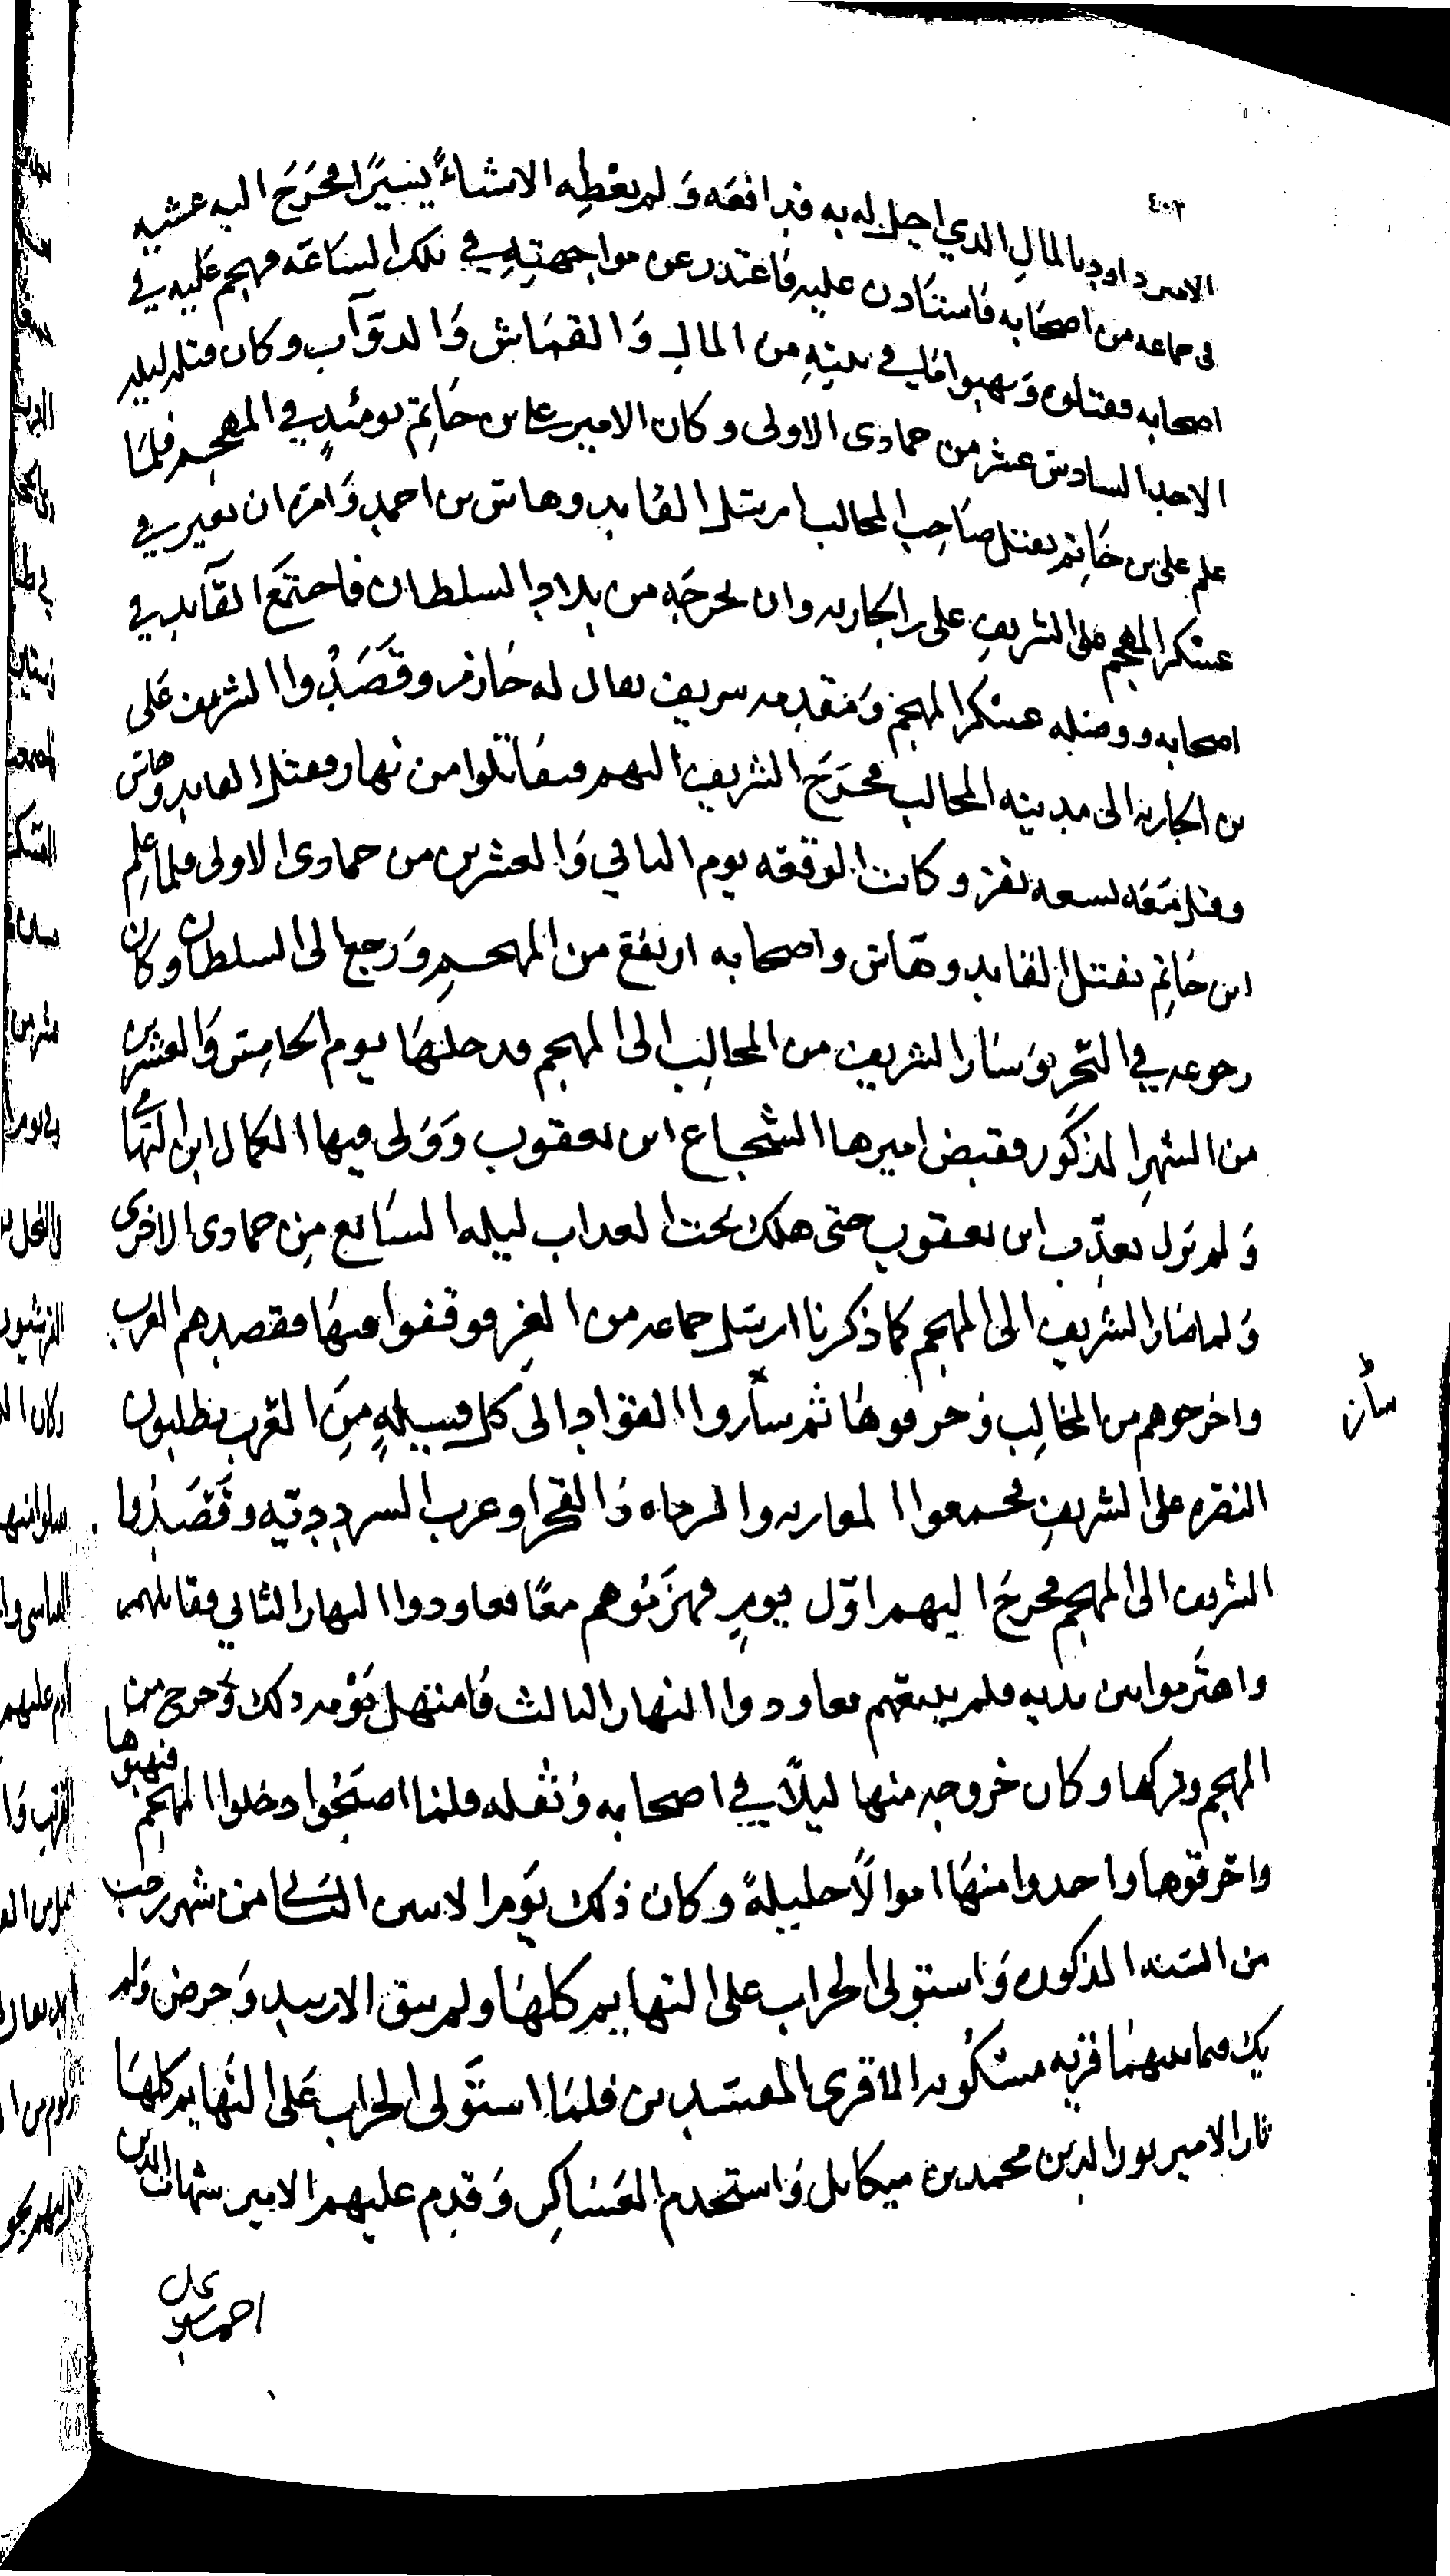 ٤٠٣
الامير داود بالمال الذي احيل له به فدافعه وَلم يعْطِه الا شَاءً يسِيرًا فخَرَج اليه عشيه
في جماعه من اصحَابه فاستَادن عليه فاعْتذر عن مواجهتِهِ في تلك السَاعَه فهجم عَليه في
اصحابه فقتلوه وَنهبوا مَا في بيتِهِ من المالِ وَالقمَاش وَالدوَآب وكان قتله ليله
الاحد السادس عشر من جمادى الاولى وكان الامير علي بن حَاتِم يومئذٍ في المهجم فلمَا
علم علي بن حَاتِم بقتل صَاحِب المحالب امر بتل القايد وهاس بن احمد وَامرَه ان يغير في
عسْكر المهجم على الشريفِ علي بن الجاربه وان يخرجَه من بلادِ السلطان فاجتمَع القَآيد في
اصحابه ووصله عسْكر المهجم وَمقدمه شريف يقال له حَازم وقَصَدُوا الشريف عَلي
بن الجاربه الى مدينه المحالب فخَرَج الشريف اليهم فقَاتلوا من نهار فقتل القايد وهاس
وقتل مَعَه تسعه نفر وكانت الوقعه يوم الثاني وَالعشرين من جمادى الاولى فلما علِم
ابن حَاتِم بقتل القايد وهَاس واصحابه ارتفع من المهجمِ وَرجع الى السلطان وكان
رجوعه في البَحر وَسَار الشريف من المحالِب الى المهجم فدخلهَا يوم الخامِس وَالعشرين
من الشهرِ المذكُور فقبض اميرها الشجاع ابن يعقوب وَوَلى فيها الكمال ابن التهَامي
وَلم يزل يعذِّب ابن يعقوب حتى هلك تحت العداب ليله السَابع مِن جمادى الاخرى
وَلما صَار الشريف الى المهجم كما ذكرنا ارسَل جماعه من الغزِ فوقفوا فيهَا فقصدهم العرب
واخرجوهم من المحَالِب وَحرقوهَا ثم سَاروا القوَاد الى كل قبيلهٍ مِنَ العَرب يطلبون
سَار
النصره على الشريفِ فجمعوا المعاربه والرماه وَالقحرا وعرب السرددِيّه وقَصَدُوا
الشريف الى المهجم فخرجَ اليهم اوّل يومٍ فهزَمُوهم معًا فعاودوا النهار الثاني فقاتلهم
واهتَزموا بين يديه فلم يتبعَهم فعاودوا النهار الثالث فَامتهل يَوْمه ذلك وَخرج من
المهجم وتركها وكان خروجه منها ليلًا في اصحابه وَثقله فلما اصبَحُوا دخلوا المهجَم فنهبوها
واحرقوهَا واخدوا منهَا اموالًا جليلةً وكان ذلك يَوم الاثنين الثَامن من شهر رجب
من السَنه المذكوره وَاستولى الخراب على التهايم كلهَا ولم يبق الا زبيد وَحرض وَلم
يك فيما بينهمَا قريه مسْكُونه الا قرى المفسَدين فلمَا استَولى الخراب عَلى التهايم كلهَا
ثار الامير نور الدين محمد بن ميكائل وَاستخدم العَسَاكِر وَقدم عليهم الامير شهاب الدين
احمد